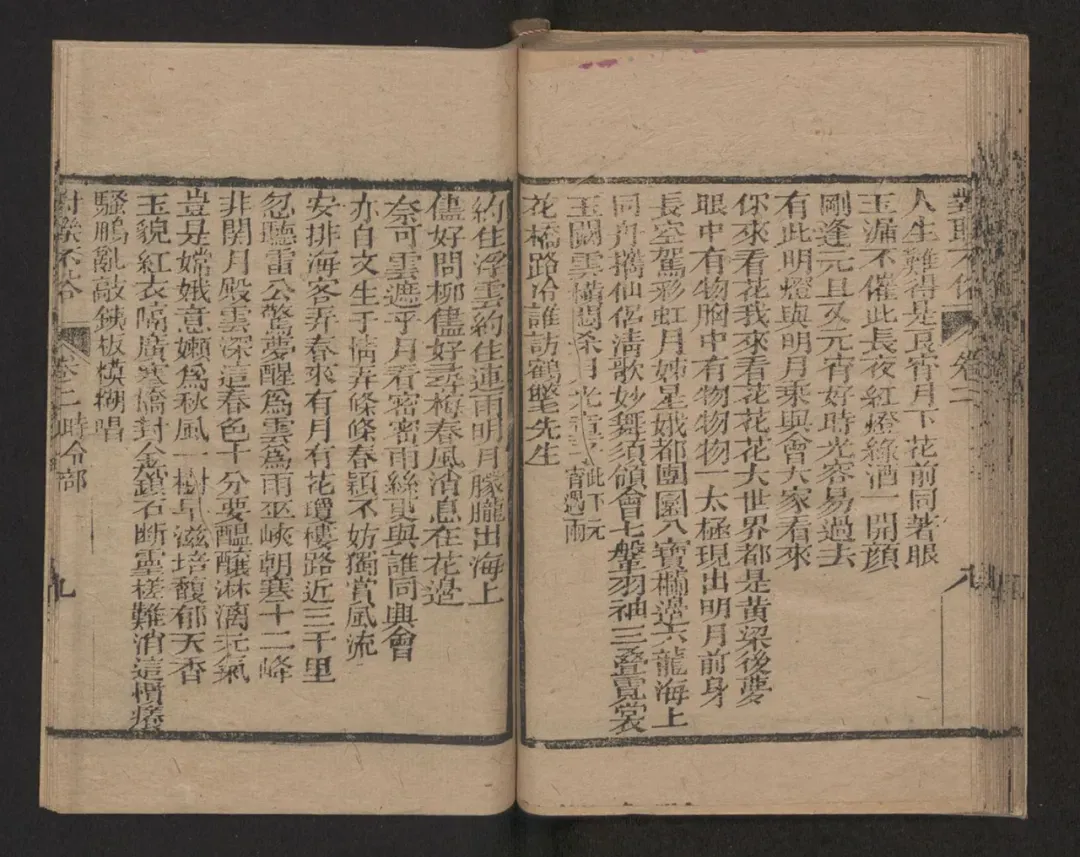 卷二
八
人生難得是良宵月下花前同著眼
玉漏不催此長夜紅燈綠酒一開顏
剛逢元旦又元宵好時光容易過去
有此明燈與明月乘興會大家看來
你來看花我來看花花花大世界都是黃梁後夢
眼中有物胸中有物物物一太極現出明月前身
長空駕彩虹月姊星娥都團圓八寶欄邊六龍海上
同舟攜仙侶清歌妙舞須領會七盤羽袖三疊霓裳
玉關雲橫 此下元
宵遇雨
花橋路冷誰訪鶴墅先生
約住浮雲約住連雨明月朦朧出海上
儘好問柳儘好尋梅春風消息在花邊
奈可雲遮乎月看密密雨絲更與誰同興會
亦自文生于情弄條條春穎不妨獨賞風流
安排海客弄春來有月有花瓊樓路近三千里
忽聽雷公驚夢醒為雲為雨巫峽朝寒十二峰
非關月殿雲深這春色十分要醞釀淋漓元氣
豈是嫦娥意嬾為秋風一樹早滋培馥郁天香
玉貌紅衣隔廣寒僑對金鎖石斷靈槎難消這慣癢
騷鵬亂敲鐵板模糊唱
卷二時令部
九